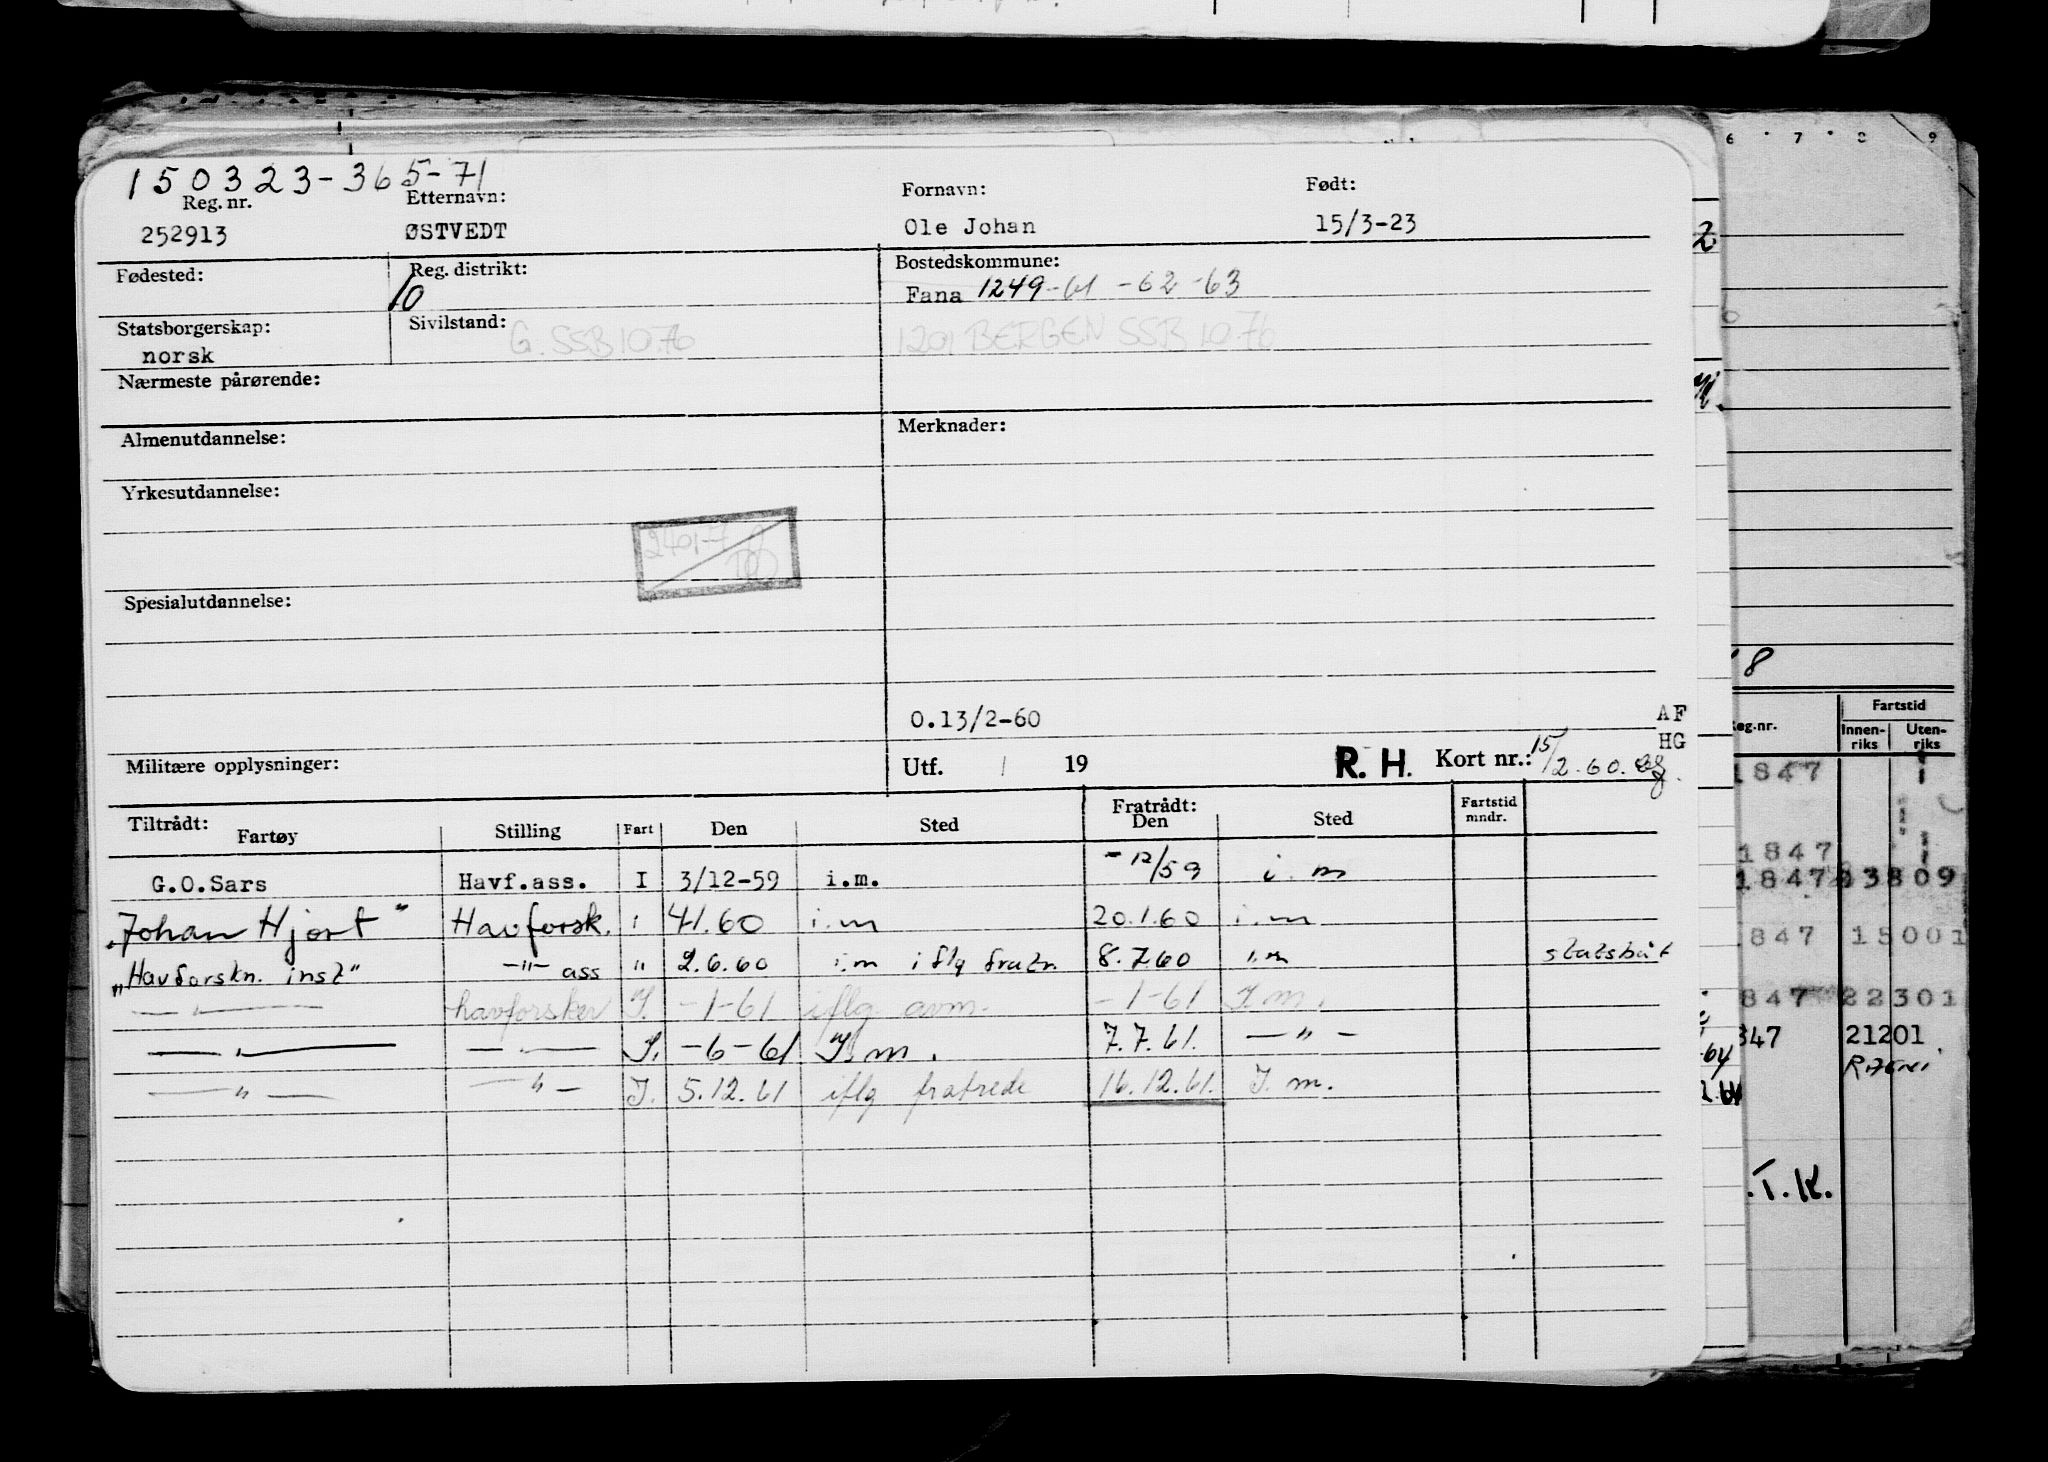 150323-365-71
Reg. nr. Etternavn: Fornavn: Født:
252913 ØSTVEDT Ole Johan 15/3-23
Fødested: Reg. distrikt: Bostedskommune:
10 Fana 1249-61-62-63
Statsborgerskap: Sivilstand:
norsk G. SSB 10.76 1201 BERGEN SSB 10.76
Nærmeste pårørende:
Almenutdannelse: Merknader:
Yrkesutdannelse:
2401-7
Spesialutdannelse:
0.13/2-60 AF
HG
Militære opplysninger: Utf. / 19 R. H. Kort nr.: 15/2.60.
Tiltrådt: Fratrådt:
Fartøy Stilling Fart Den Sted Den Sted Fartstid mndr.
G.O.Sars Havf.ass. I 3/12-59 i.m. -12/59 i.m
"Johan Hjort" Havforsk. i 4.1.60 i.m 20.1.60 i.m
"Havforskn. inst" -"- ass " 2.6.60 i.m iflg fratr. 8.7.60 i.m statsbåt
— " — havforsker I. -1-61 iflg avm. -1-61 I.m.
— " — — " — I. -6-61 I.m. 7.7.61. — " —
— " — — " — I. 5.12.61 iflg fratrede 16.12.61. I.m.
6 7 8 9
2
8
Reg.nr. Fartstid
Innen-riks Uten-riks
1847
1847
1847 13809
847 15001
847 22301
347 21201
64
.T.K.